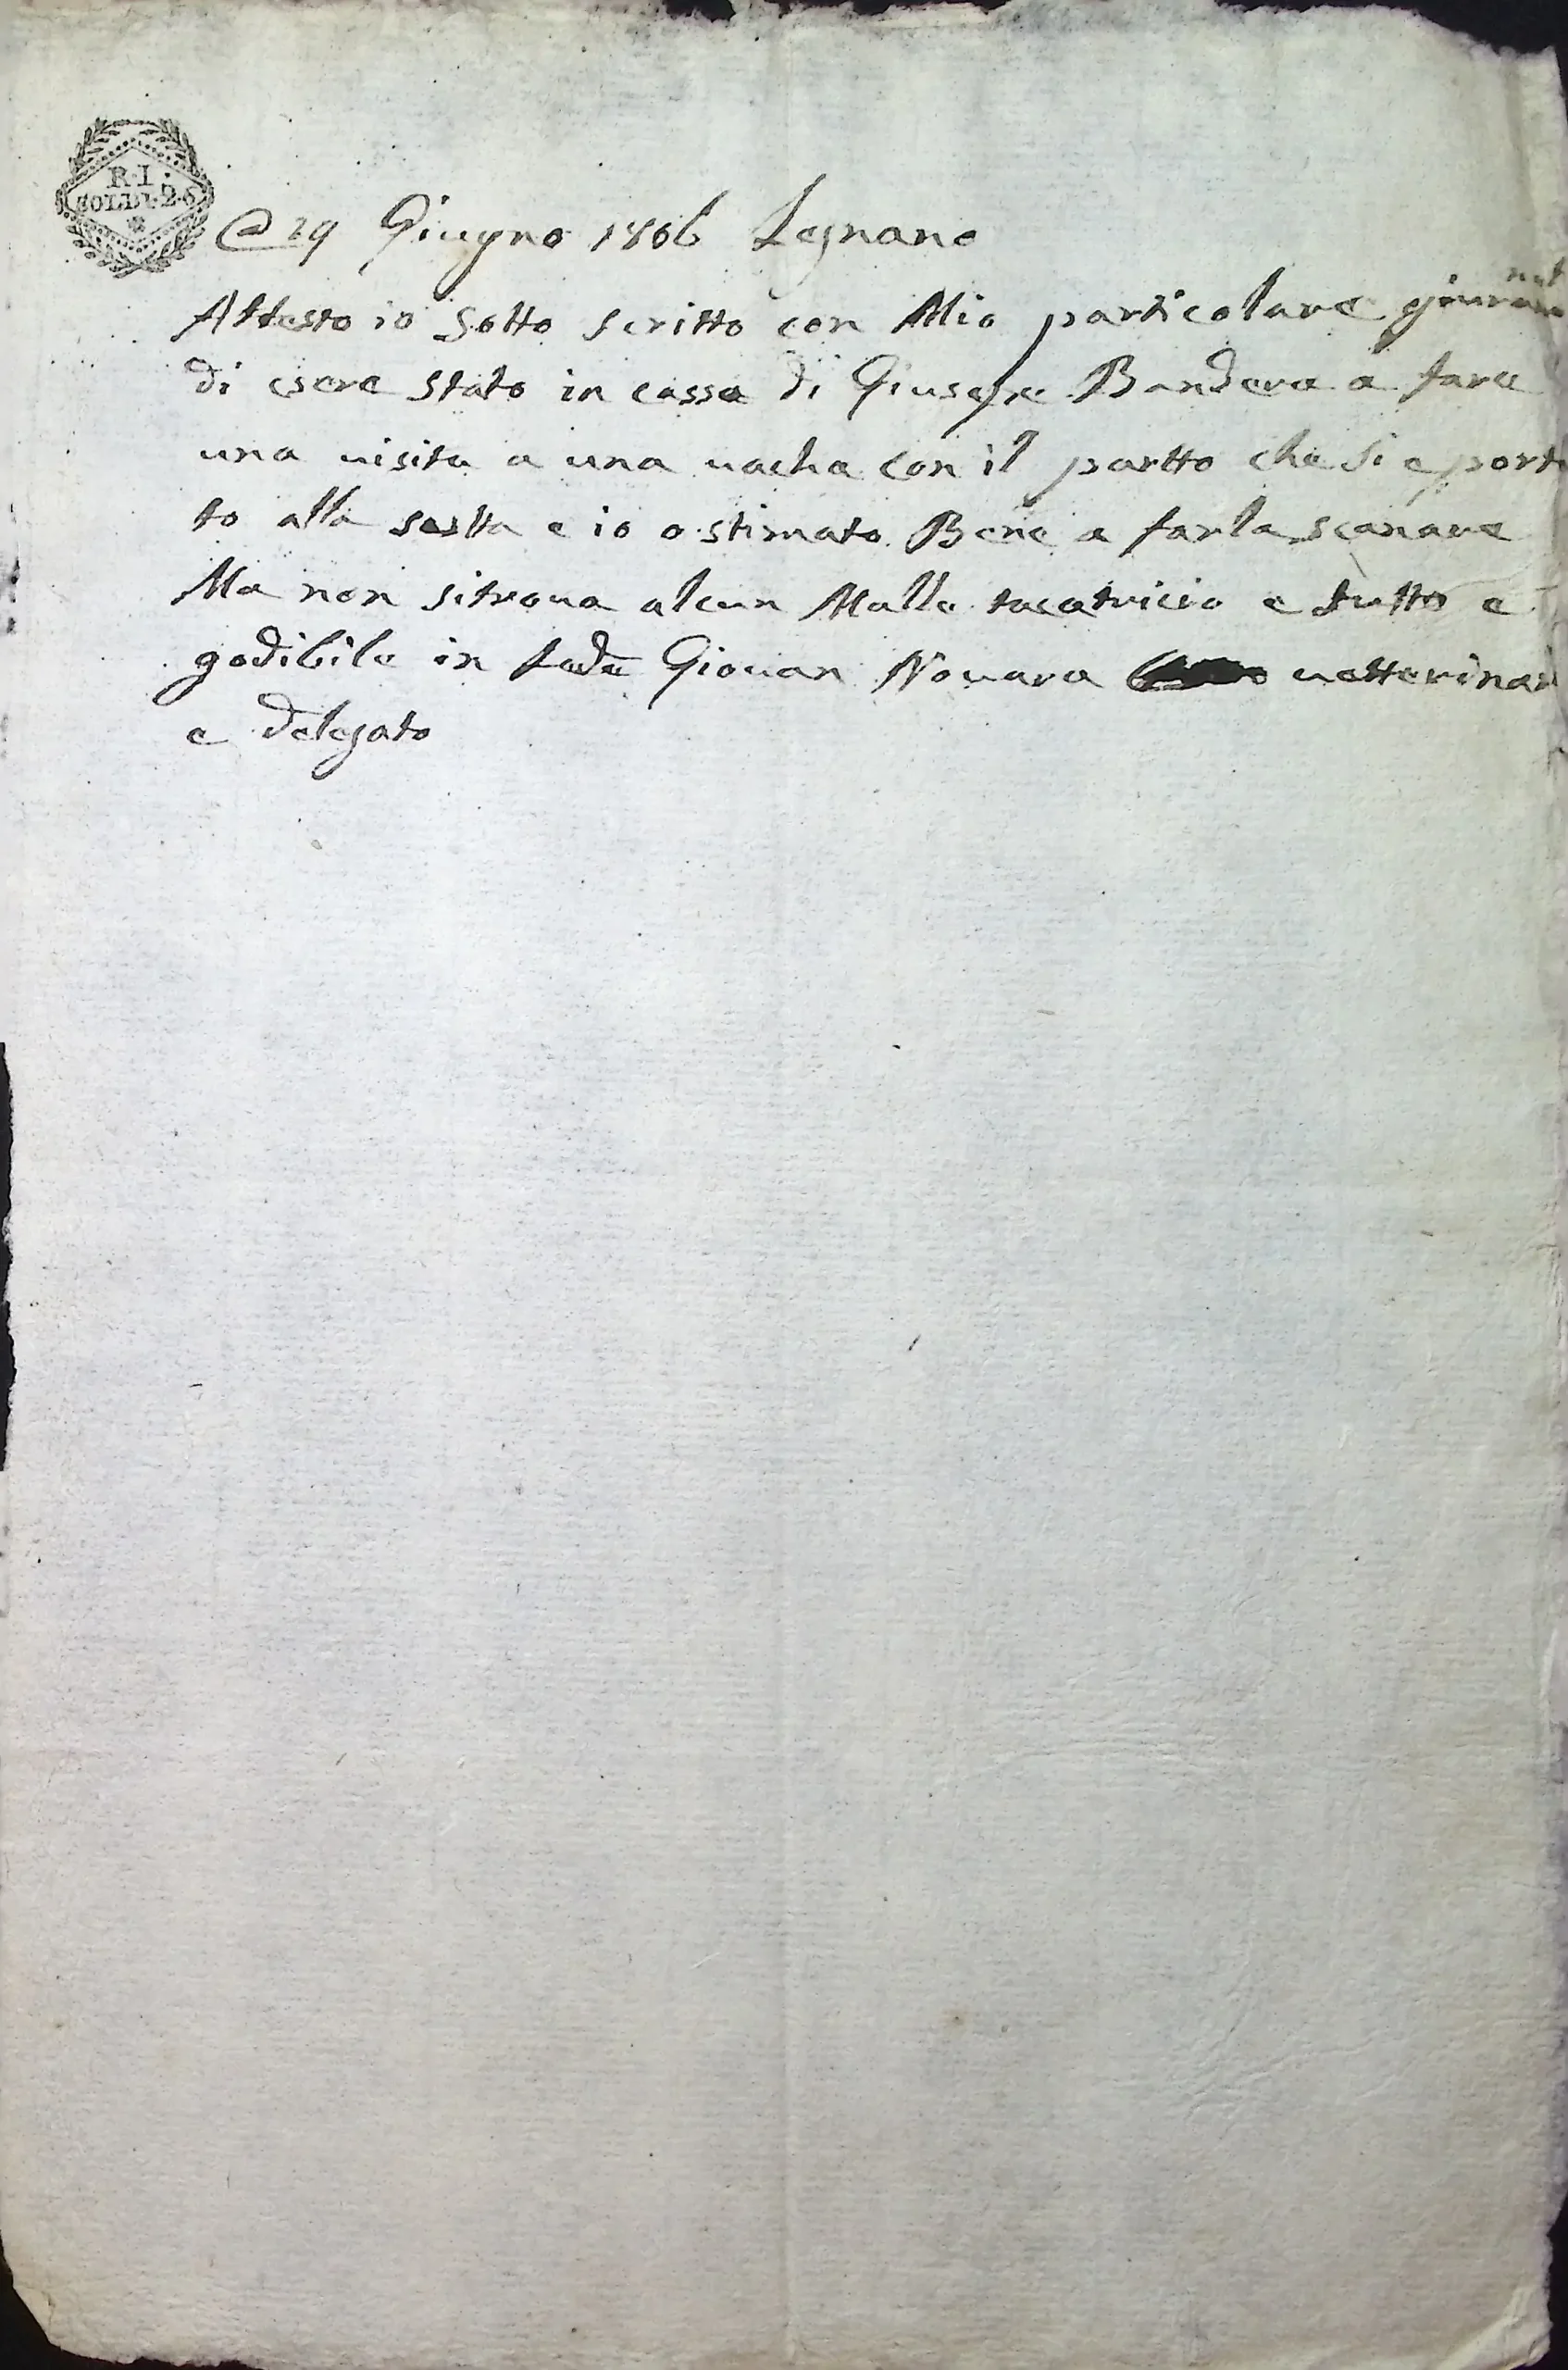 R.I.
SOLDI.26
@ 29 Giugno 1806 Legnano
Attesto io sotto scritto con Mio particolare
di esere stato in cassa di Giusepe Bandera a fare
una uisita a una uacha con il partto che si e porta
to alla e io o stimato Bene a farla scanare
Ma non si troua alcun Malle tacaticcio e tutto e
godibile in fede Giouan Nouara uetterinar
e delegato